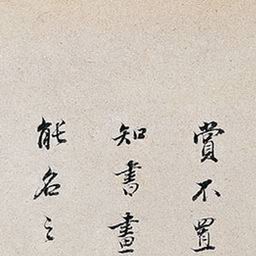 賞不置
知書畫
能名之